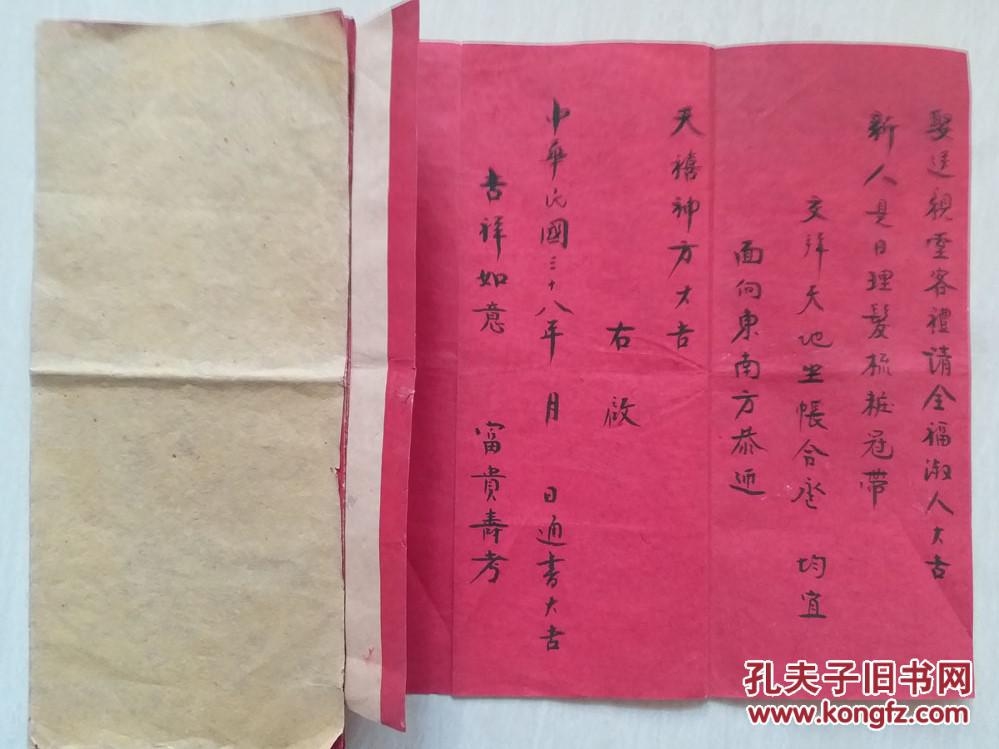 娶送親堂客禮請全福淑人大吉
新人是日理髮梳粧冠帶
交拜天地坐帳合巹 均宜
面向東南方恭迎
天禧神方大吉
右啟
中華民國三十八年 月 日通書大吉
吉祥如意 富貴壽考
孔夫子旧书网
www.kongfz.com